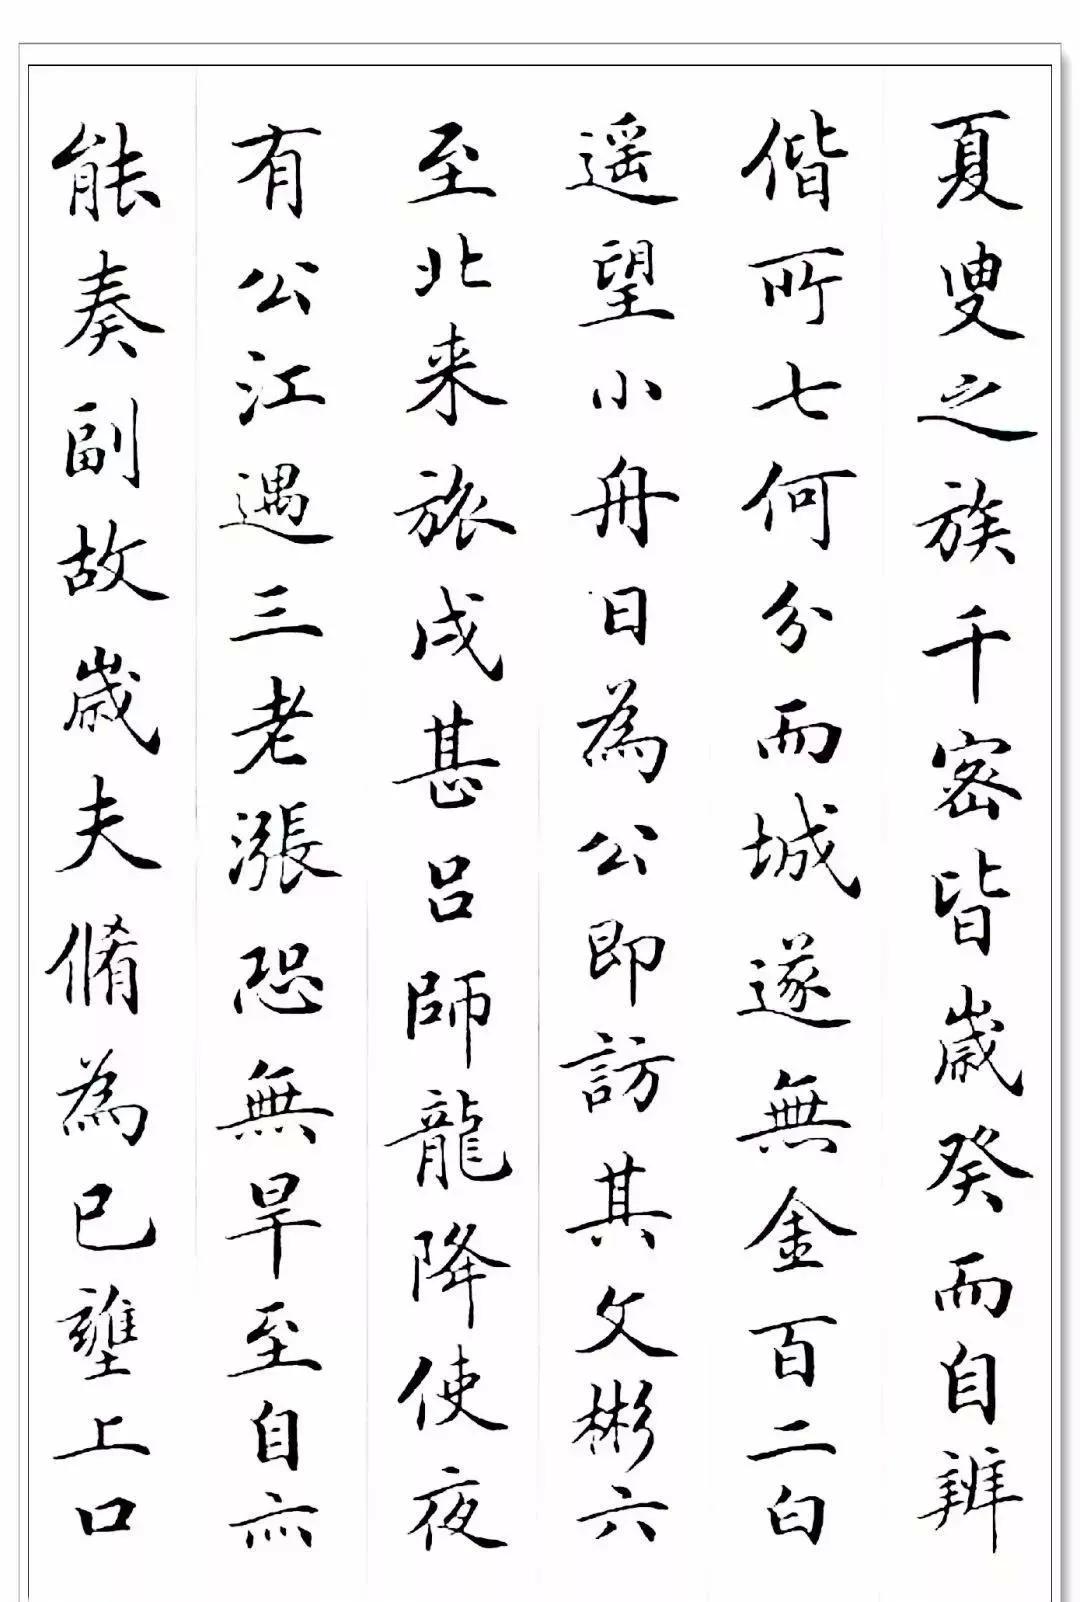 夏叟之族千密皆歲癸而自辨
偕所七何分而城遂無金百二白
遥望小舟日為公即訪其文彬六
至北来旅戍甚吕師龍降使夜
有公江遇三老漲恐無旱至自亦
能奏副故歲夫脩為已壅上口